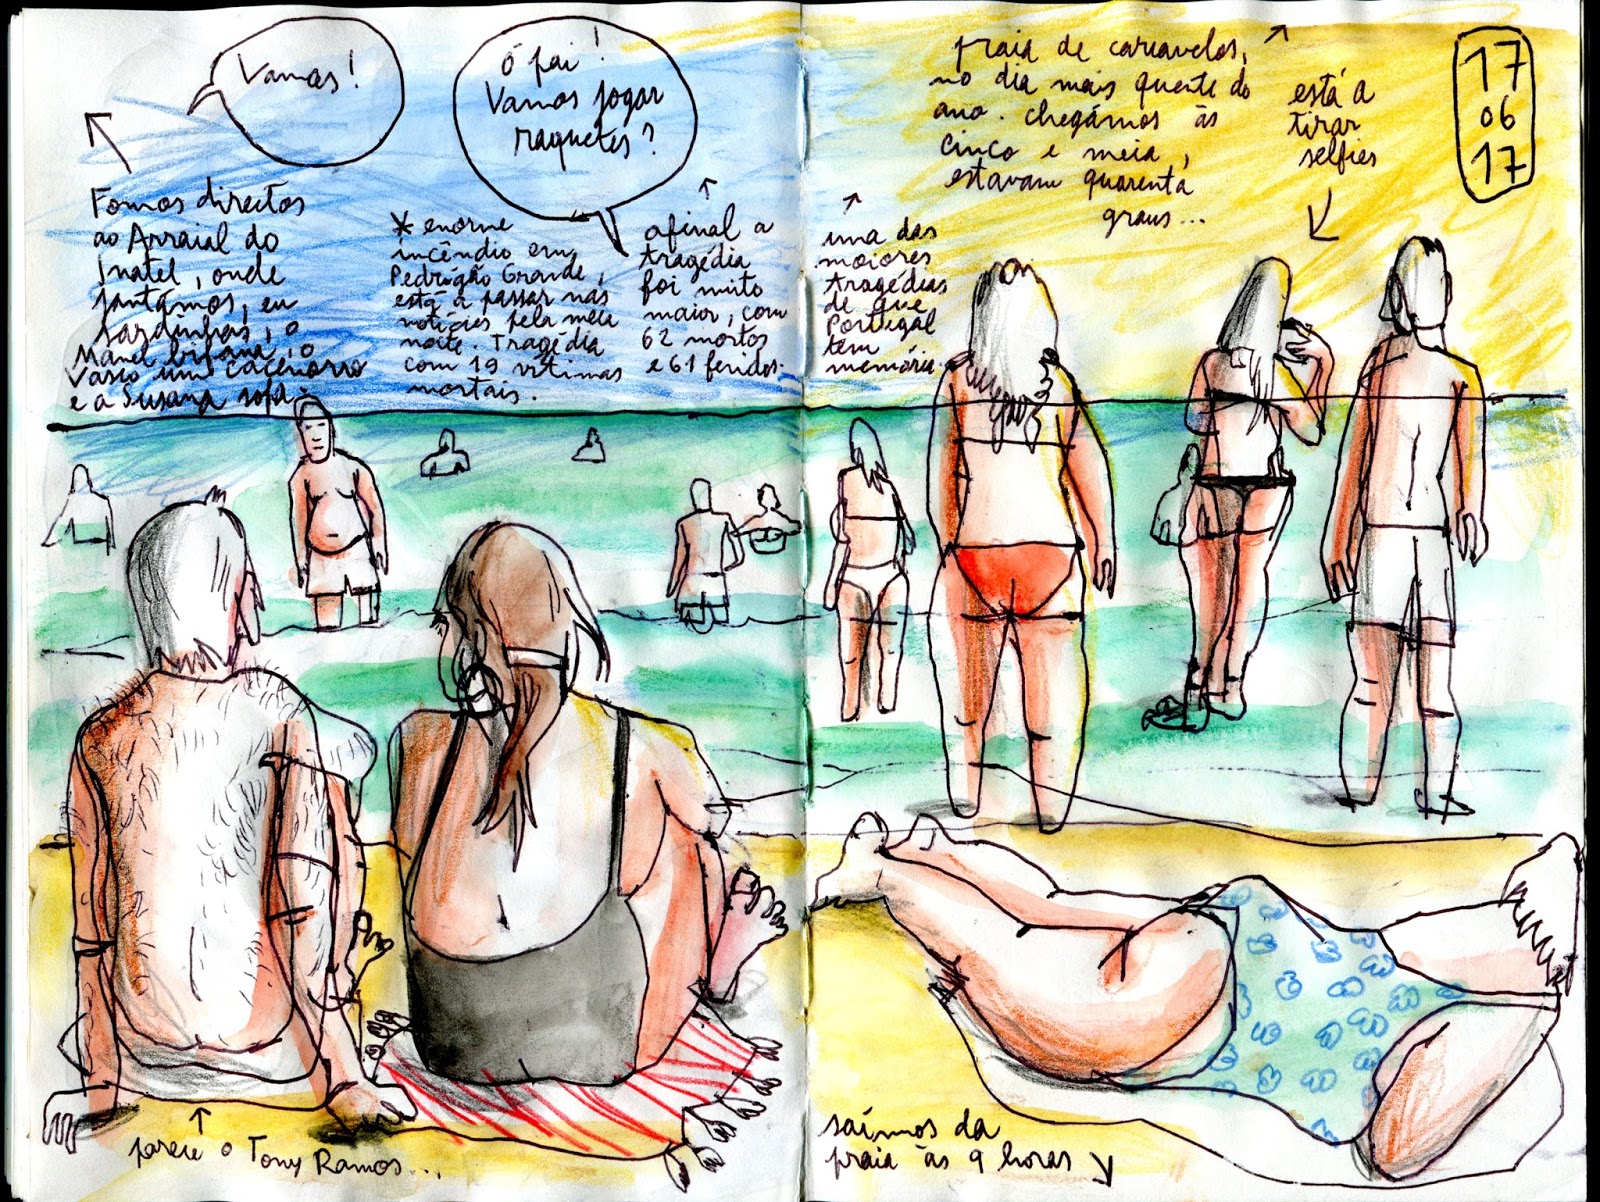 Vamos!
ó pai!
Vamos jogar
raquetes?
praia de carcavelos,
no dia mais quente do
ano. chegámos às
cinco e meia,
estavam quarenta
graus...
está a
tirar
selfies
17
06
17
Fomos directos
ao Arraial do
Inatel, onde
jantámos, eu
sardinhas, o
Manel bifana, o
Vasco um cachorro
e a Susana sopa.
* enorme
incêndio em
Pedrógão Grande,
está a passar nas
notícias pela meia
noite. Tragédia
com 19 vítimas
mortais.
afinal a
tragédia
foi muito
maior, com
62 mortos
e 61 feridos.
uma das
maiores
tragédias
de que
Portugal
tem
memória.
parece o Tony Ramos...
saímos da
praia às 9 horas